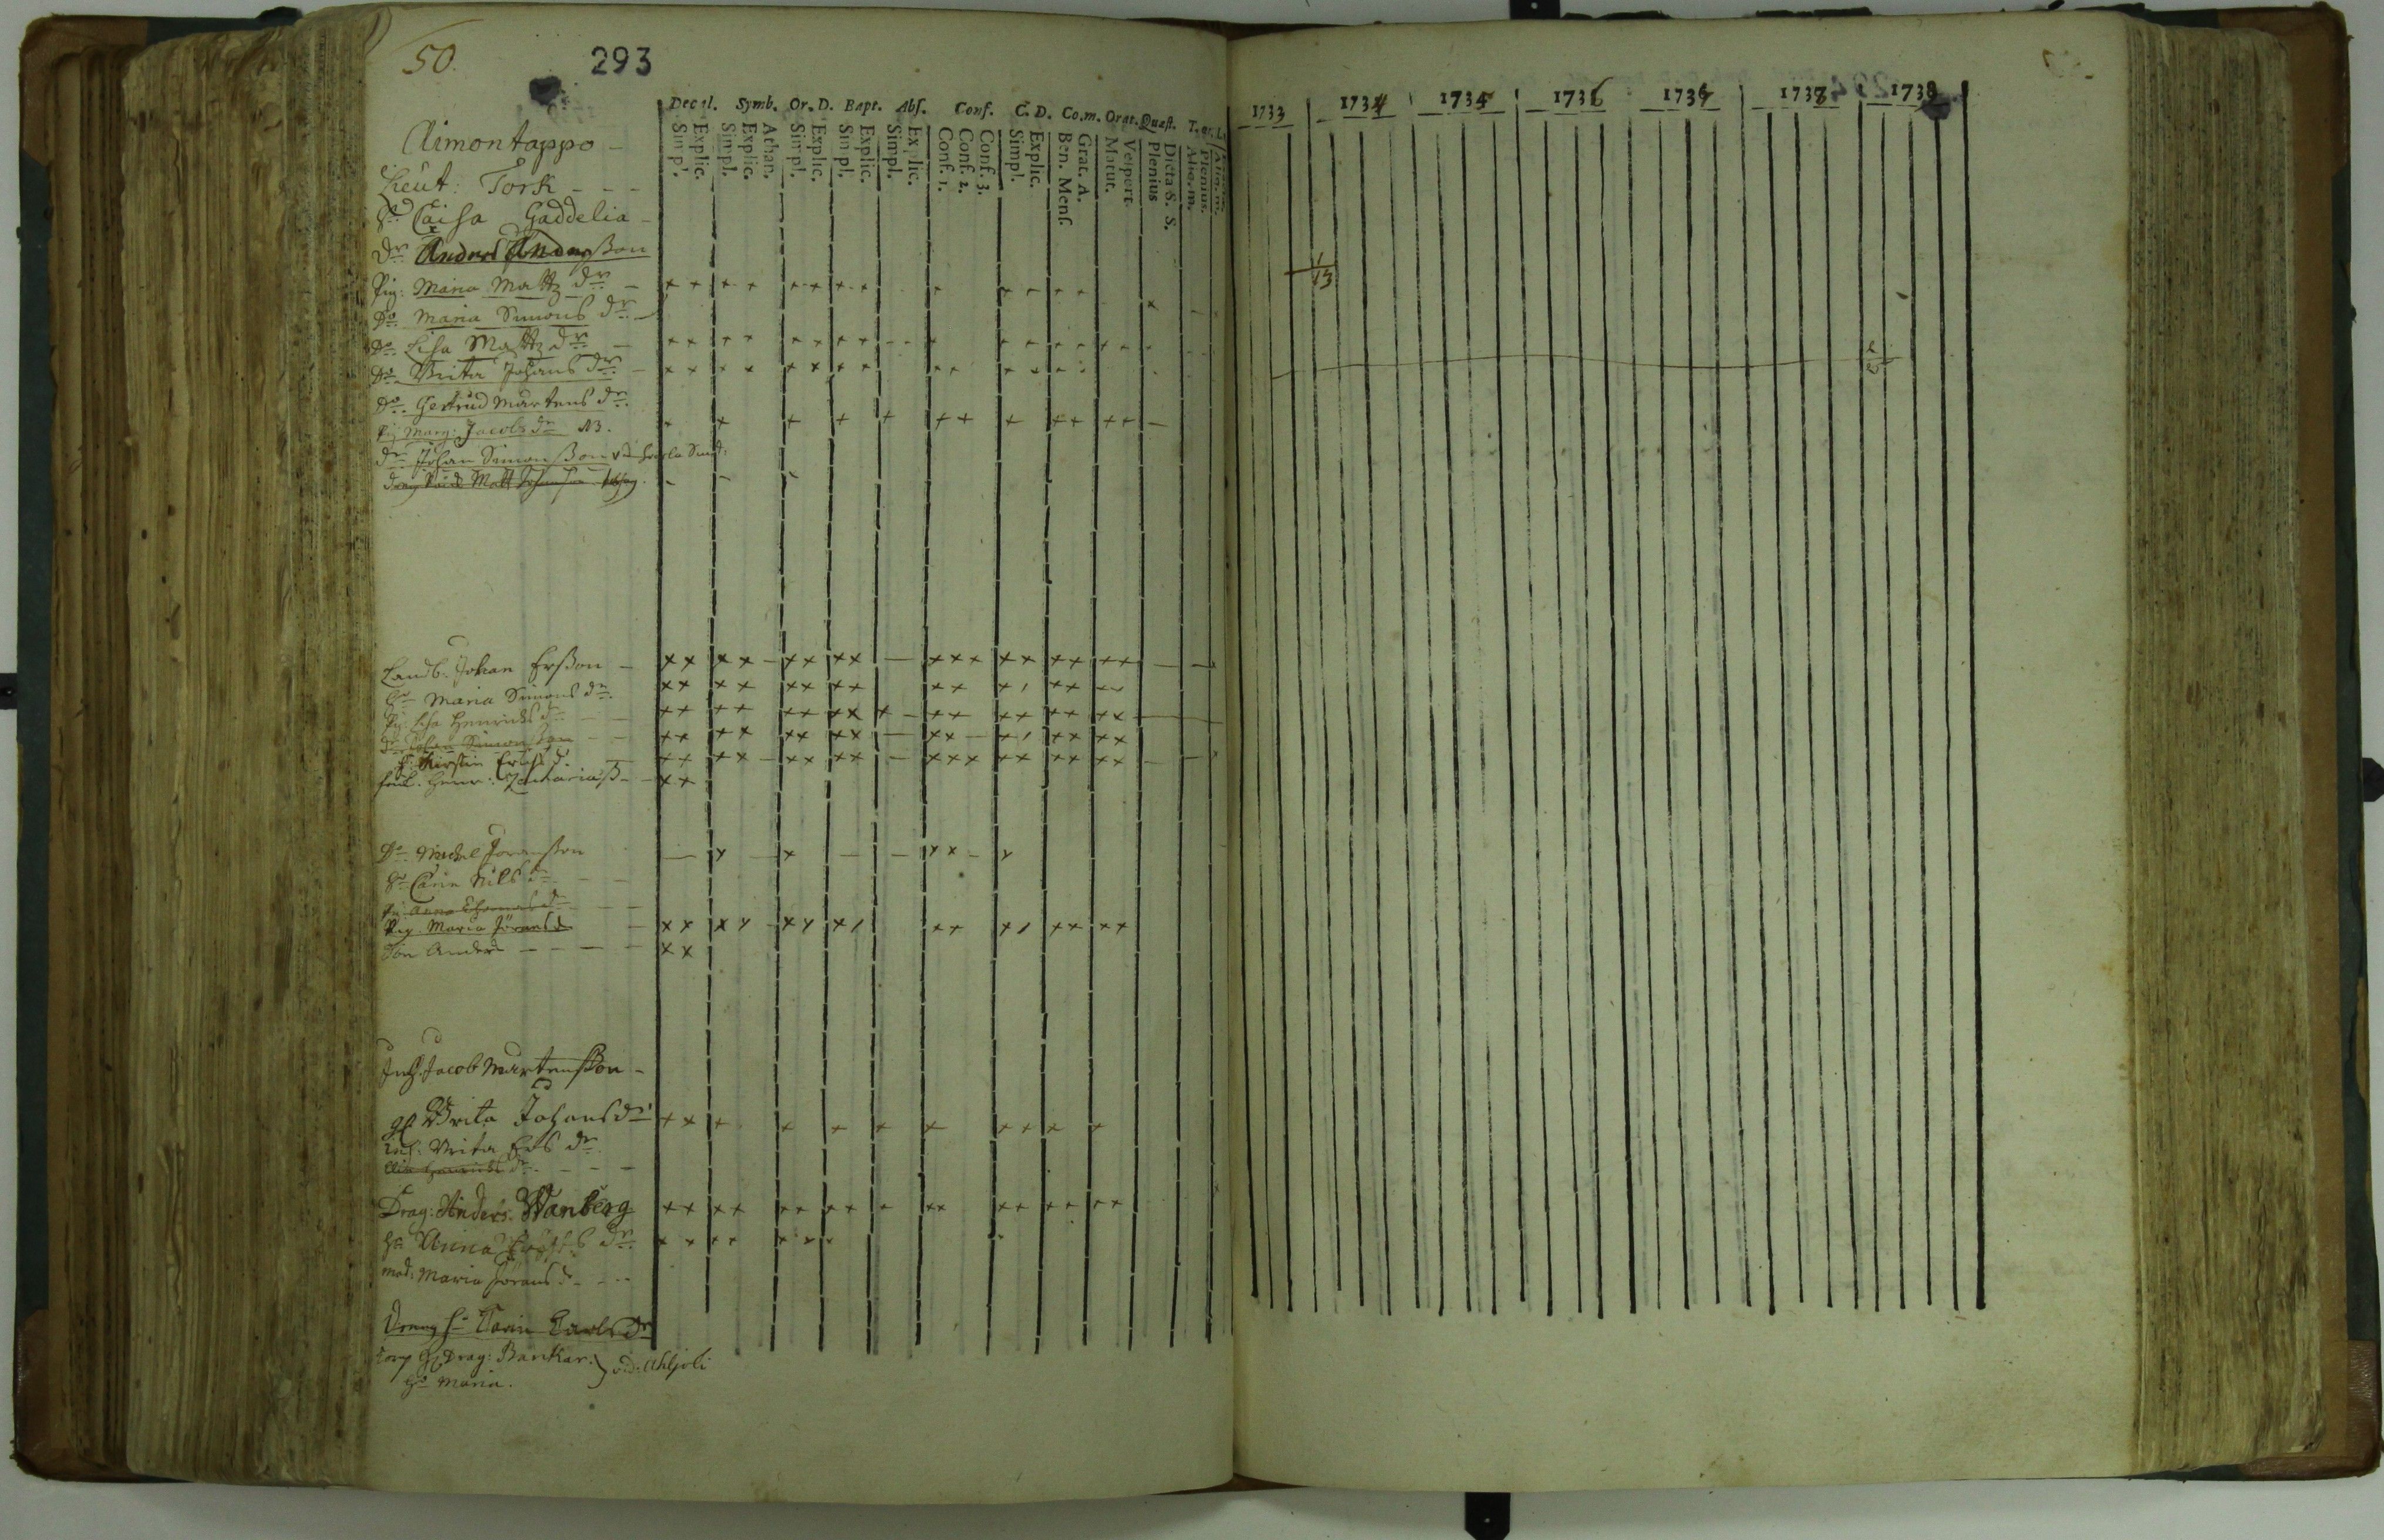 50.
293
Decal. Symb. Or. D. Bapt. Abs. Conf. C. D. Co.m. Orat. Quæst.
Simpl. Explic. Simpl. Explic. Athan. Simpl. Explic. Simpl. Explic. Simpl. Explic. Conf. 1. Conf. 2. Conf. 3. Simpl. Explic. Ben. Mens. Grat. A. Matut. Vespert. Plenius Dicta S. S. Alio. m. Plenius.
Aimontappo
Lieut: Tork
Hu Caisa Gaddelia
Dr Anders Andersson
Pig: Maria Mattz dr
Do Maria Simons dr
Do Lisa Mattz dr
Do Brita Johans dr
Do Gertrud Mårtens dr
Pig Marg: Jacobs dr N3.
dr Johan Simonsson
Landb. Johan Ersson
Hu Maria Simons dr
Pig: Lisa Henrichs dr
dr Johan Simonsson
Kirstin Erichs d.
Henr: Zachariass
Do Michel Joransson
Hu Carin Nils dr
Pig Anna Thomas dr
Pig: Maria Jörans d
Son Anders
Inh. Jacob Mårtensson
H Brita Johans dr
Inh: Brita Ers dr
Henrichs dr
Drag: Anders Wanberg
Hu Anna dr
mod: Maria Jörans d
Carin Carls dr
Drag: Bankar.
Hu Maria.
vid. Ahljoki
1733 1734 1735 1736 1737 1738
1
13